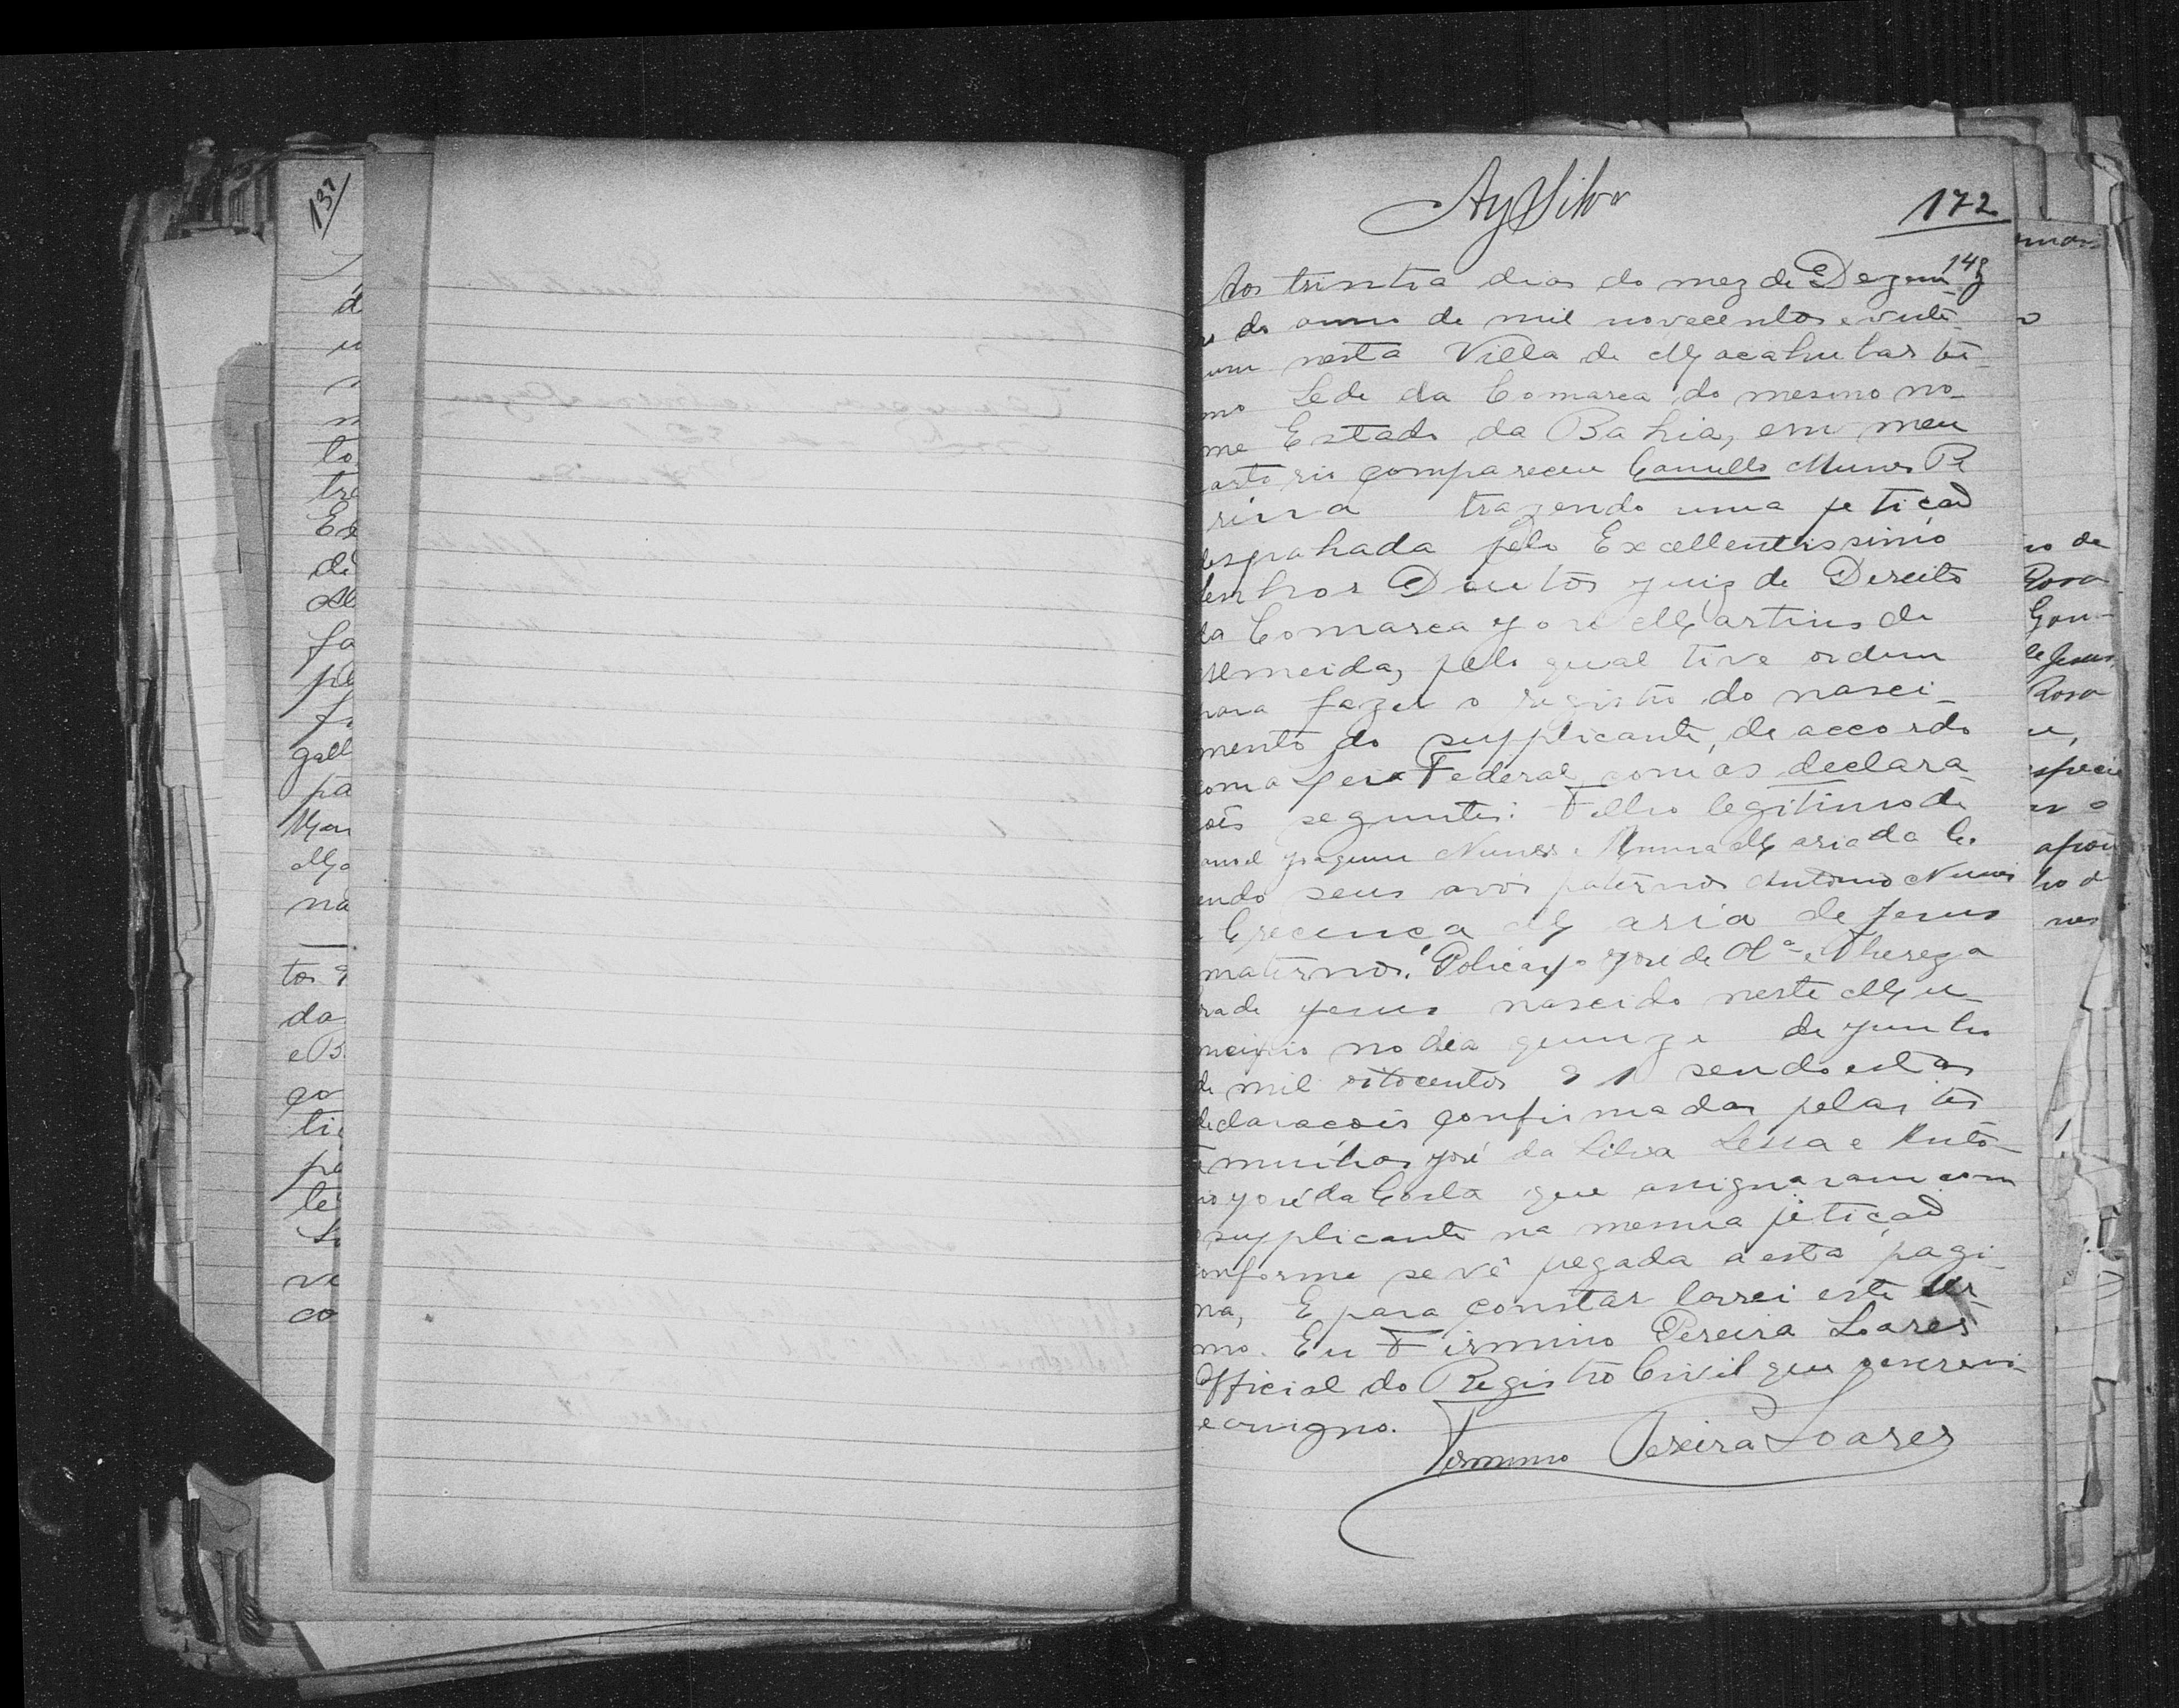 137
d
n
to
tre
Ex
di
fa
pe
gall
pa
na
tos
da
e B
go
ti
pe
te
ve
co
AySilva
172
148
Aos trintra dias do mez de Dezem
do anno de mil novecentos e vinte
um nesta Villa de Macahubas te
mo Sede da Comarca do mesmo no-
me Estado da Bahia, em meu
artorio compareceu Camillo Nunes Pe
reira trazendo uma petição
despahada pelo Excellentissimo
Senhor Doutor Juiz de Direito
da Comarca José Martins de
Almeida, pelo qual tive ordem
para fazer o registro do nasci-
mento do supplicante, de accordo
com a Leix Federal, com as declara
ões seguntes: Filho legitimo de
anoel Joaquim Nunes e Anna Maria da C.
endo seus avós paternos Antonio Nunes
Crecença Maria de Jesus
maternos: José de Olª e Thereza
de Jesus nascido neste Mu
nicipio no dia quinze de Junho
de mil oitocentos 91 sendo estas
declaracois confirmadas pelas tes
munhas José da Silva Lessa e Anto
nio José da Costa que assignaram com
o supplicante na mesma petição
conforme se vê pegada a esta pagi-
na, E para constar lavrei este ter
mo. Eu Firmino Pereira Soares
Official do Registro Civil que o escrevi
e assigno.
Firmino Pereira Soares
no de
Rosa
Gon-
de Jesus,
Rosa
ho d